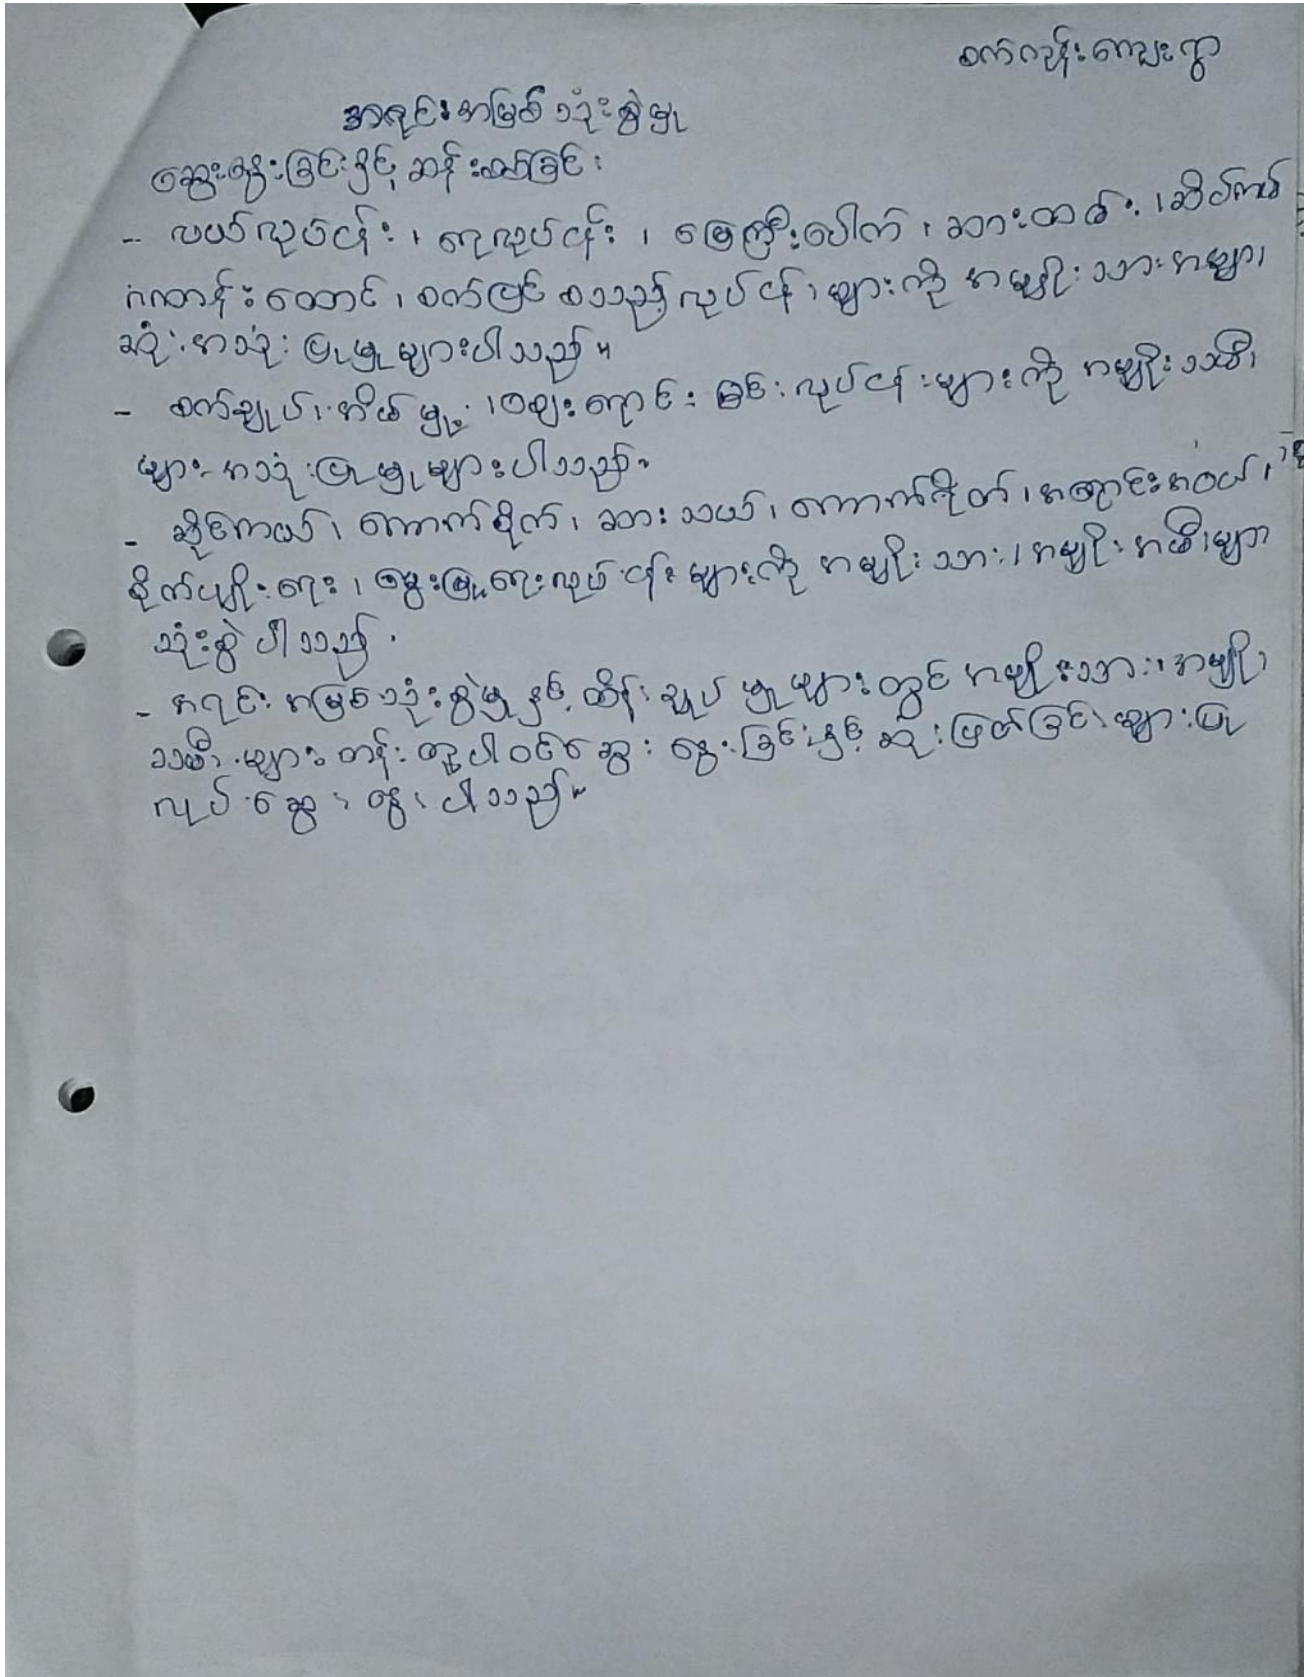 စက်ကုန်းကျေးရွာ
အရင်းအမြစ် သုံးစွဲမှု
ဆွေးနွေးခြင်းနှင့် ဆန်းစစ်ခြင်း
- လယ်လုပ်ငန်း၊ ရေလုပ်ငန်း၊ မြေကြီးပေါက်၊ ဆားထမ်း၊ ဆိပ်ကမ်
ဂဏာန်းထောင်၊ စက်ပြင် စသည့် လုပ်ငန်းများကို အမျိုးသားအများ
ဆုံးအသုံးပြုမှုများပါသည်။
- စက်ချုပ်၊ အိမ်မှု၊ ဈေးရောင်းခြင်း လုပ်ငန်းများကို အမျိုးသမီး
များ အသုံးပြုမှုများပါသည်။
- ဆိုင်ကယ်၊ ကောက်စိုက်၊ ဆားသယ်၊ ကောက်ရိတ်၊ အရောင်းအဝယ်၊
စိုက်ပျိုးရေး၊ မွေးမြူရေးလုပ်ငန်းများကို အမျိုးသား၊ အမျိုးအမီးများ
သုံးစွဲပါသည်။
- အရင်းအမြစ်သုံးစွဲမှုနှင့် ထိန်းချုပ်မှုများတွင် အမျိုးသား၊ အမျိုး
သမီးများ တန်းတူပါဝင်ဆွေးနွေးခြင်းနှင့် ဆုံးဖြတ်ခြင်းများပြု
လုပ်ဆွေးနွေးပါသည်။